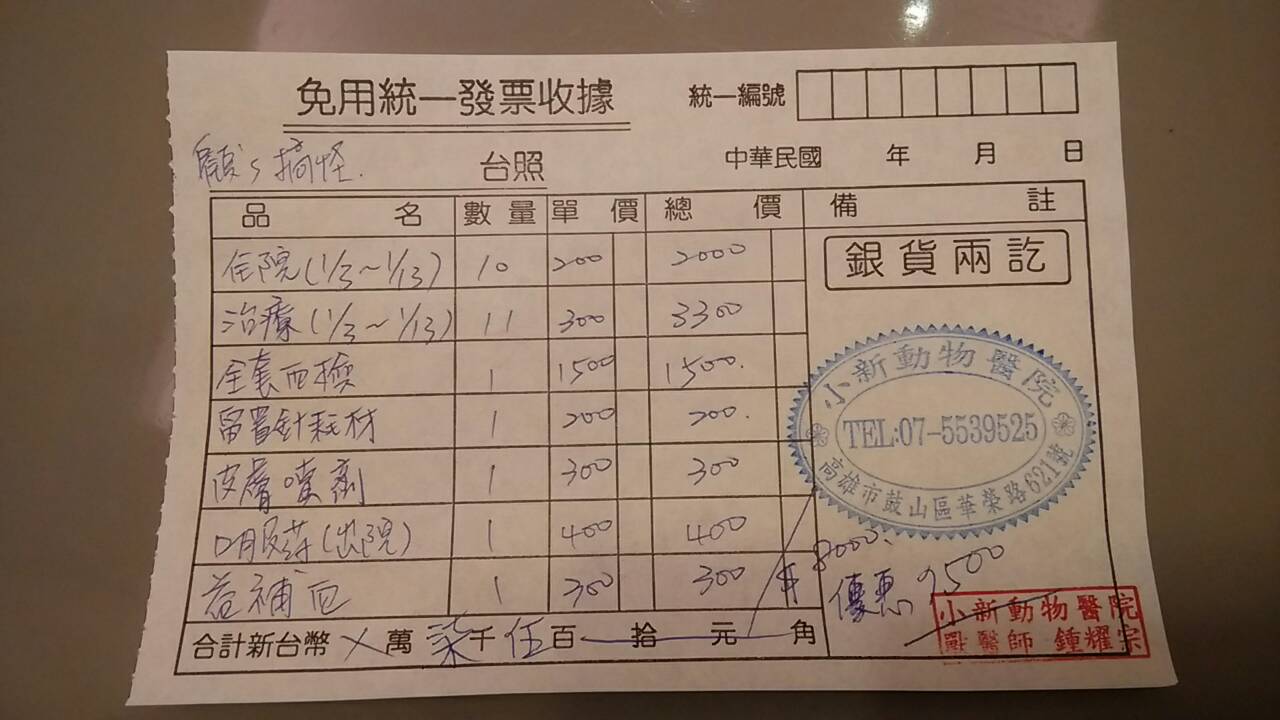 免用統一發票收據 統一編號
搞怪. 台照 中華民國 年 月 日
品名 數量 單價 總價 備註
住院(1/3～1/13) 10 200 2000 銀貨兩訖
治療(1/3～1/13) 11 300 3300
全套血檢 1 1500 1500.
留置針耗材 1 200 200.
皮膚噴劑 1 300 300
口服藥(出院) 1 400 400
益補血 1 300 300
8000.
優惠 7500
合計新台幣 ㄨ萬柒千伍百拾元角
小新動物醫院
TEL:07-5539525
高雄市鼓山區華榮路621號
小新動物醫院
獸醫師 鍾耀宗